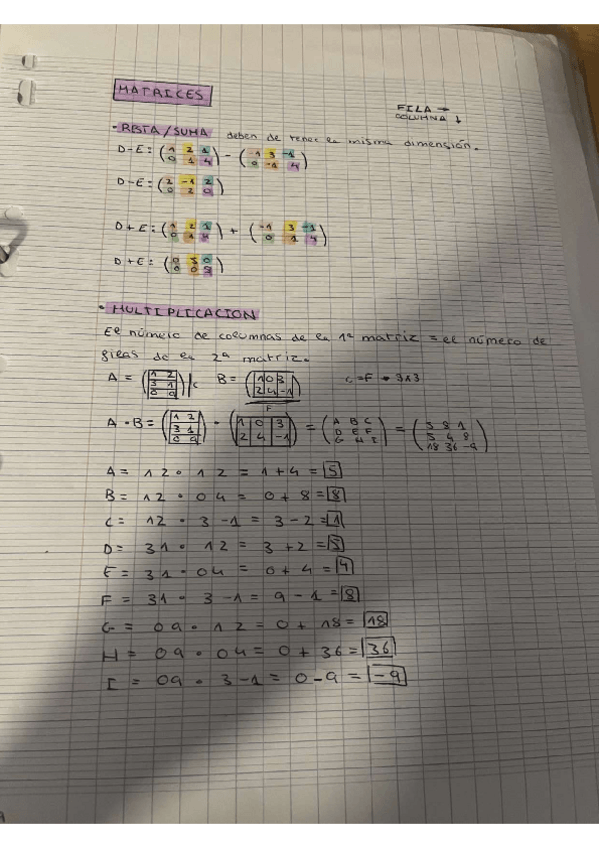 MATRICES
FILA →
COLUMNA ↓
• RESTA/SUMA deben de tener la misma dimensión.
D-E = (1 2 1 / 0 1 4) - (-1 3 -1 / 0 -1 4)
D-E = (2 -1 2 / 0 2 0)
D+E = (1 2 1 / 0 1 4) + (-1 3 -1 / 0 1 4)
D+E = (0 5 0 / 0 0 8)
• MULTIPLICACION
El número de columnas de la 1ª matriz = el número de
filas de la 2ª matriz.
A = (1 2 / 3 1 / 0 9) C B = (1 0 3 / 2 4 -1) C=F → 3x3
F
A · B = (1 2 / 3 1 / 0 9) · (1 0 3 / 2 4 -1) = (A B C / D E F / G H I) = (5 8 1 / 5 4 8 / 18 36 -9)
A = 1 2 · 1 2 = 1+4 = 5
B = 1 2 · 0 4 = 0 + 8 = 8
C = 12 · 3 -1 = 3 - 2 = 1
D = 31 · 12 = 3 + 2 = 5
E = 31 · 04 = 0 + 4 = 4
F = 31 · 3 -1 = 9 - 1 = 8
G = 09 · 1 2 = 0 + 18 = 18
H = 09 · 04 = 0 + 36 = 36
I = 09 · 3 -1 = 0 - 9 = -9